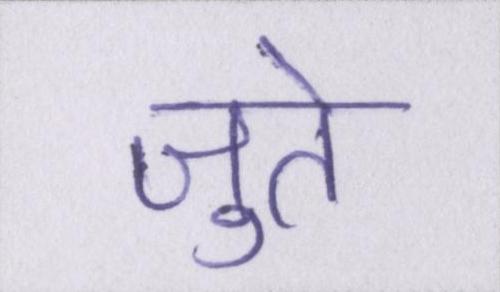 जुते